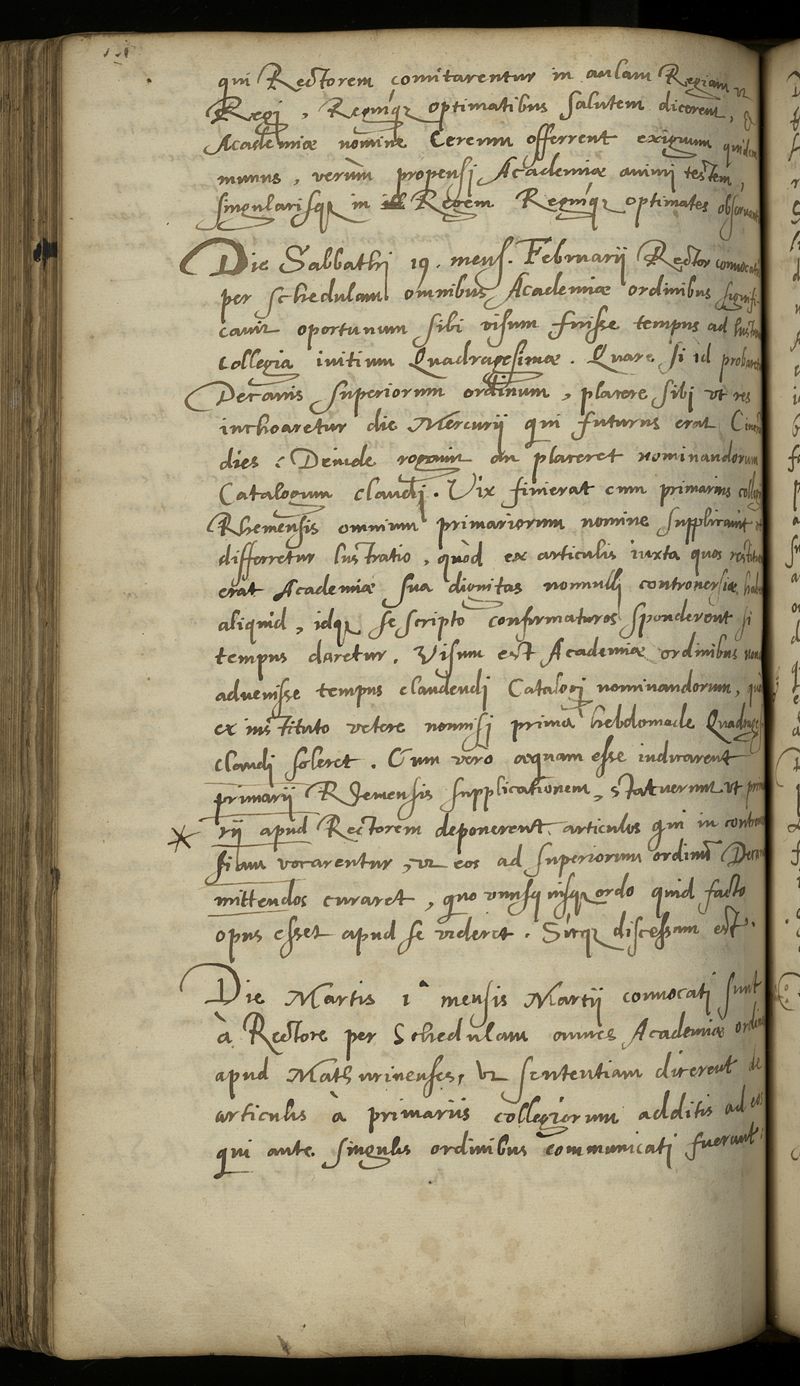 qui Rectorem comitarentur in aulam Regiam ut
Regi, Regniq; optimatibus salutem dicerent, &
Academiæ nomine Cereum offerrent exiguum quidem
munus, verùm propensi Academiæ animi testem,
singularisq; in Regem Regniq; optimates
Die Sabbathi 19. mens. Februarij Rector
per schedulam omnibus Academiæ ordinibus signifi-
cavit oportunum sibi visum fuisse tempus ad
Collegia initium Quadragesimæ. Quare si id
Decanis superiorum ordinum, placere sibi ut res
inchoaretur die Mercurij qui futurus erat
dies: Deinde rogavit an placeret nominandorum
Catalogum claudi. Vix finierat cum primarius
Rhemensis omnium primariorum nomine supplicavit ut
differretur lustratio, quòd ex articulis iuxta quos
erat Academiæ sua dignitas nonnulli controversiæ
aliquid, idq; se scripto confirmaturos sponderent si
tempus daretur. Visum est Academiæ ordinibus
advenisse tempus claudendi Catalogi nominandorum,
ex instituto vetere nonnisi prima hebdomade
claudi soleret. Cum vero æquam esse iudicarent
primarij Rhemensis supplicationem, statuerunt ut prima
rij apud Rectorem deponerent articulos qui in contro
siam vocarentur, ut eos ad superiorum ordinū
mittendos curaret, quo unusquisq; ordo quid facto
opus esset apud se videret. Sicq; discessum est.
Die Martis 1ª mensis Martij convocati sunt
à Rectore per Schedulam omnes Academiæ
apud Mathurinenses, ut sententiam dicerent de
articulis à primariis collegiorum additis ad eos
qui ante singulis ordinibus communicati fuerant.